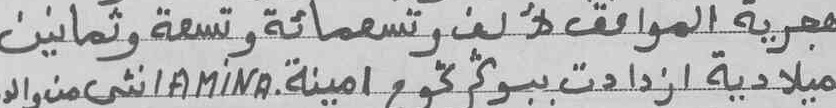 هجرية الموافق لألف وتسعمائة وتسعة وثمانين
ميلادية ازدادت ببوكرم امينة. AMINA انثى من والد